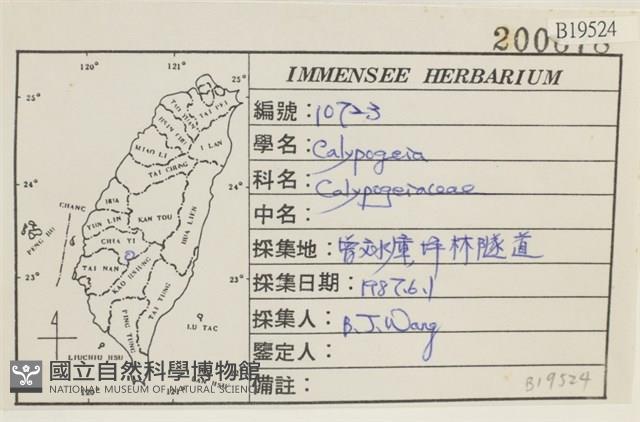 B19524
IMMENSEE HERBARIUM
編號：
學名：Calypogeia
科名：Calypogeiaceae
中名：
採集地：曾文水庫，坪林隧道
採集日期：1987.6.1
採集人：B.J.Wang
鑒定人：
備註：
B19524
120° 121°
25° 25°
TAI PEI
I LAN
MIAO LI
TAI CHUNG
CHANG HUA
NAN TOU
YUN LIN
HUA LIEN
PENG HU
CHIA YI
24° 24°
TAI NAN
KAO HSIUNG
TAI TUNG
23° 23°
PING TUNG
LU TAO
LIUCHIU HSU
120° 121°
國立自然科學博物館
NATIONAL MUSEUM OF NATURAL SCIENCE